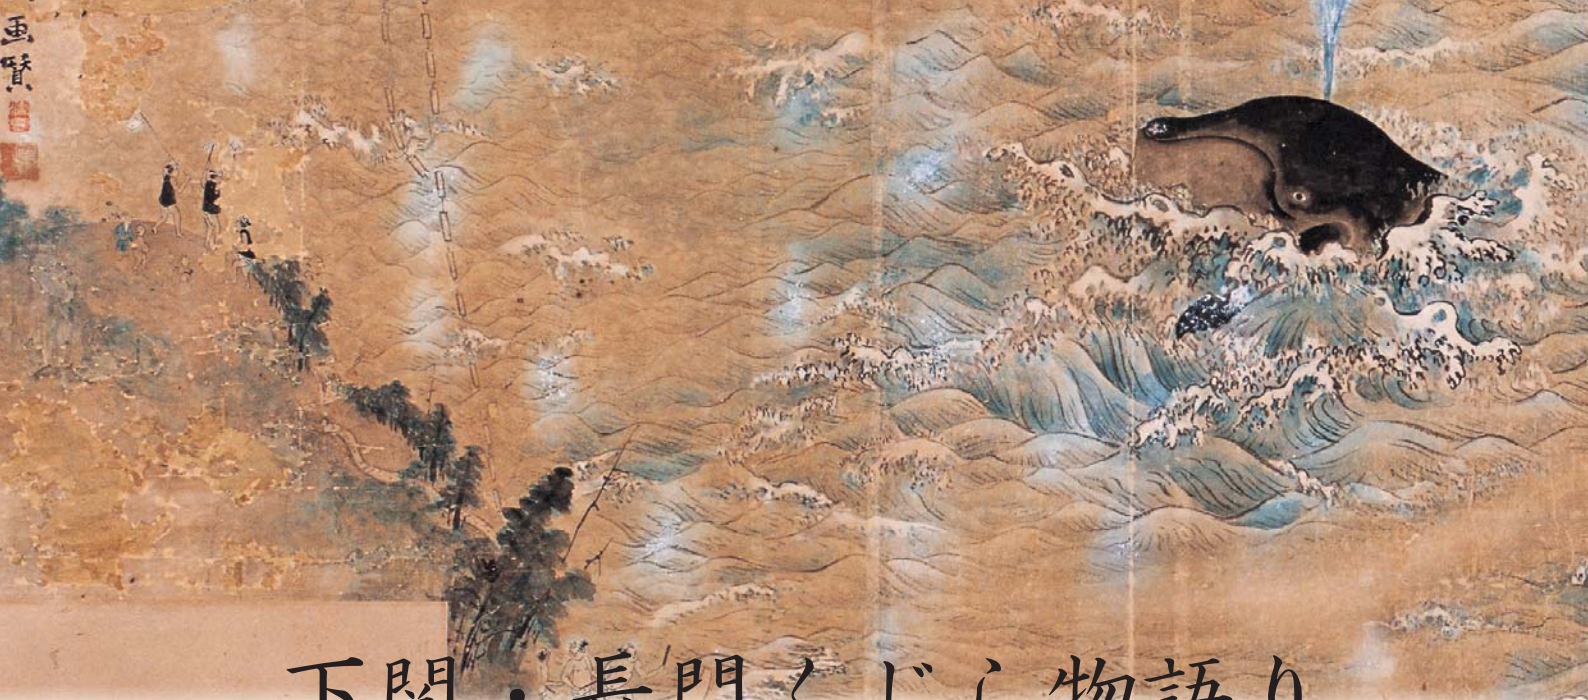 画賛
下関・長門くじら物語り